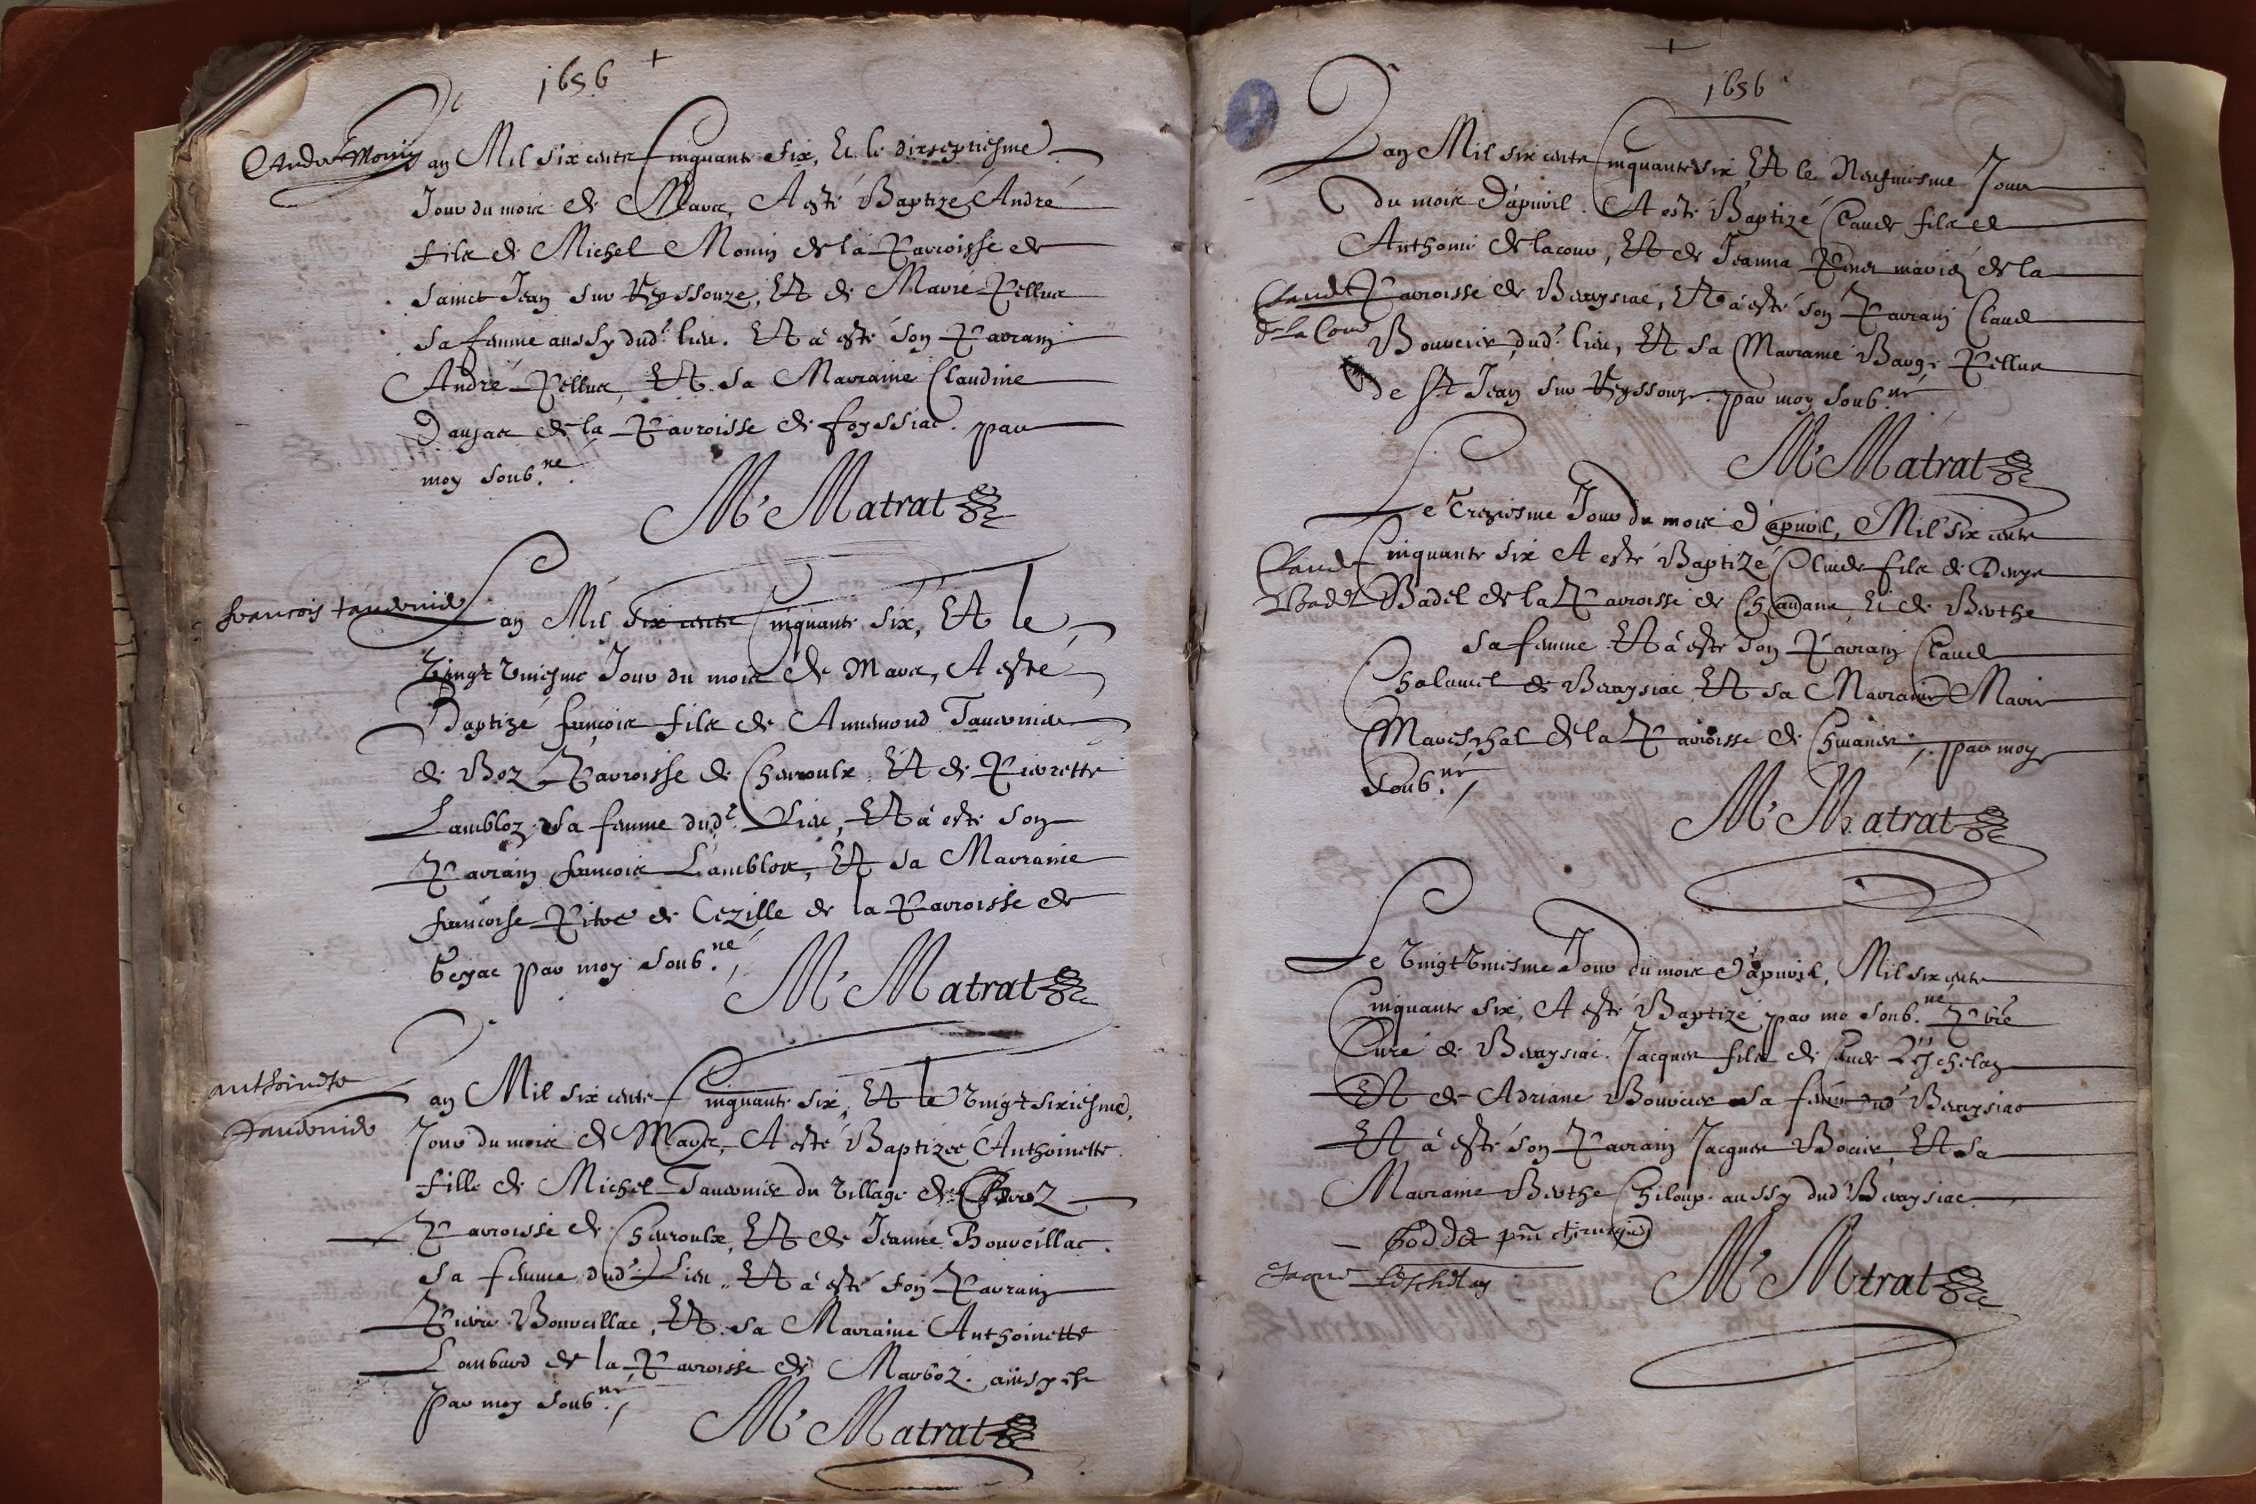 1656
André Monin
L'an Mil six cents Cinquante six, Et le dixseptiesme
Jour du mois de Mars, A esté Baptizé André
fils de Michel Monin de la Parroisse de
Sainct Jean sur Reyssouze, Et de Marie Pellus
sa femme aussy dud.t lieu. Et a esté son Parrain
André Pellus, Et sa Marraine Claudine
de la Parroisse de foyssiac. par
moy soub.né
M.e Matrat
françois tavernier
L'an Mil six cents Cinquante six, Et le
Vingt Uniesme Jour du mois de Mars, A esté
Baptizé françois fils de Annemond Tavernier
de Boz Parroisse de Chevroulx, Et de Pierrette
Lambloz sa femme dud.t Lieu, Et a esté son
Parrain françois Lamblos, Et sa Marraine
françoise de Cezille de la Parroisse de
Beyac par moy soub.né
M.e Matrat
anthoinete
Tavernier
L'an Mil six cents Cinquante six, Et le Vingt sixiesme
Jour du mois de Mars, A esté Baptizée Anthoinette
fille de Michel Tavernier du village de
Parroisse de Chevroulx, Et de Jeanne Bouveillac
sa femme dud.t Lieu, Et a esté son Parrain
Pierre Bouveillac, Et sa Marraine Anthoinette
Lombard de la Parroisse de Marboz. ainsy est
par moy soub.né
M.e Matrat
1656
L'an Mil six cents Cinquante six Et le Neufviesme Jour
du mois d'apuril. A esté Baptizé Claude fils de
Anthoine delacour, Et de Jeanne mariez de la
Claude Parroisse de Bereysiac, Et a esté son Parrain Claude
de la Cour Bouvier, dud.t lieu, Et sa Marraine Pellus
de St Jean sur Reyssouze. par moy soub.né
M.e Matrat
Le Treziesme Jour du mois d'apuril, Mil six cents
Claude Cinquante six A esté Baptizé Claude fils de Denys
Badel Badel de la Parroisse de Chavane, Et de Berthe
sa femme Et a esté son Parrain Claude
Chalumel de Bereysiac Et sa Marraine Marie
Mareschal de la Parroisse de Chavanes, par moy
Soub.né
M.e Matrat
Le Vingt Uniesme Jour du mois d'apuril, Mil six cents
Cinquante six, A esté Baptizé par moy soub.né Pbre
Curé de Bereysiac. Jacques fils de Claude Leschelay
Et de Adriane Bouvier sa femme dud Bereysiac
Et a esté son Parrain Jacques Et sa
Marraine Berthe Chiloup aussy dud Bereysiac.
Goddet pnt chirurgien
Jaque Leschelay
M.e Matrat